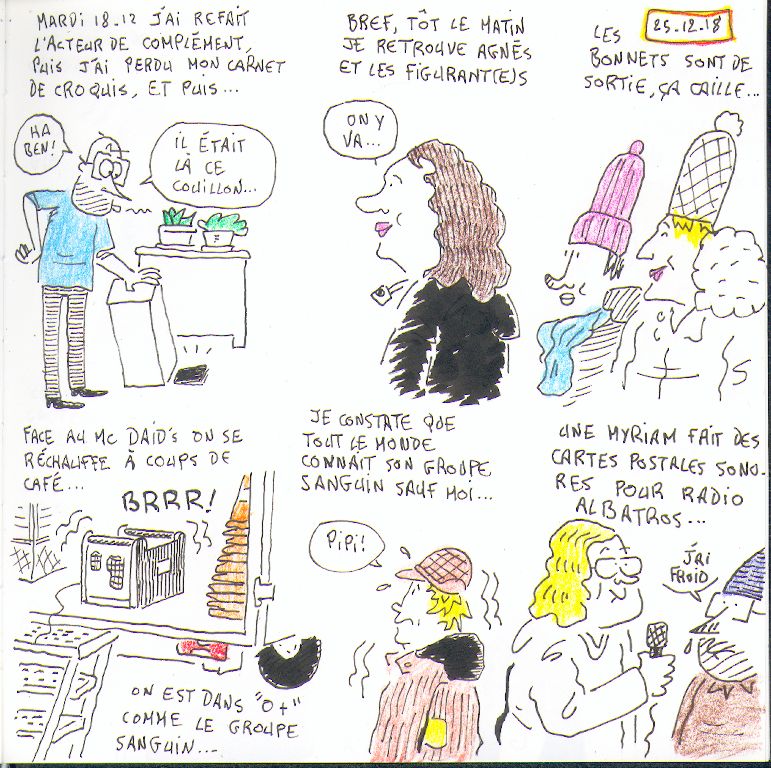 MARDI 18.12 J'AI REFAIT
L'ACTEUR DE COMPLÉMENT,
PUIS J'AI PERDU MON CARNET
DE CROQUIS, ET PUIS...
HA
BEN!
IL ÉTAIT
LÀ CE
COUILLON...
BREF, TÔT LE MATIN
JE RETROUVE AGNÈS
ET LES FIGURANT(E)S
ON Y
VA...
25.12.18
LES
BONNETS SONT DE
SORTIE, ÇA CAILLE...
FACE AU MC DAID'S ON SE
RÉCHAUFFE À COUPS DE
CAFÉ...
BRRR!
ON EST DANS "O+"
COMME LE GROUPE
SANGUIN...
JE CONSTATE QUE
TOUT LE MONDE
CONNAÎT SON GROUPE
SANGUIN SAUF MOI...
PIPI!
UNE MYRIAM FAIT DES
CARTES POSTALES SONO-
RES POUR RADIO
ALBATROS...
J'AI
FROID